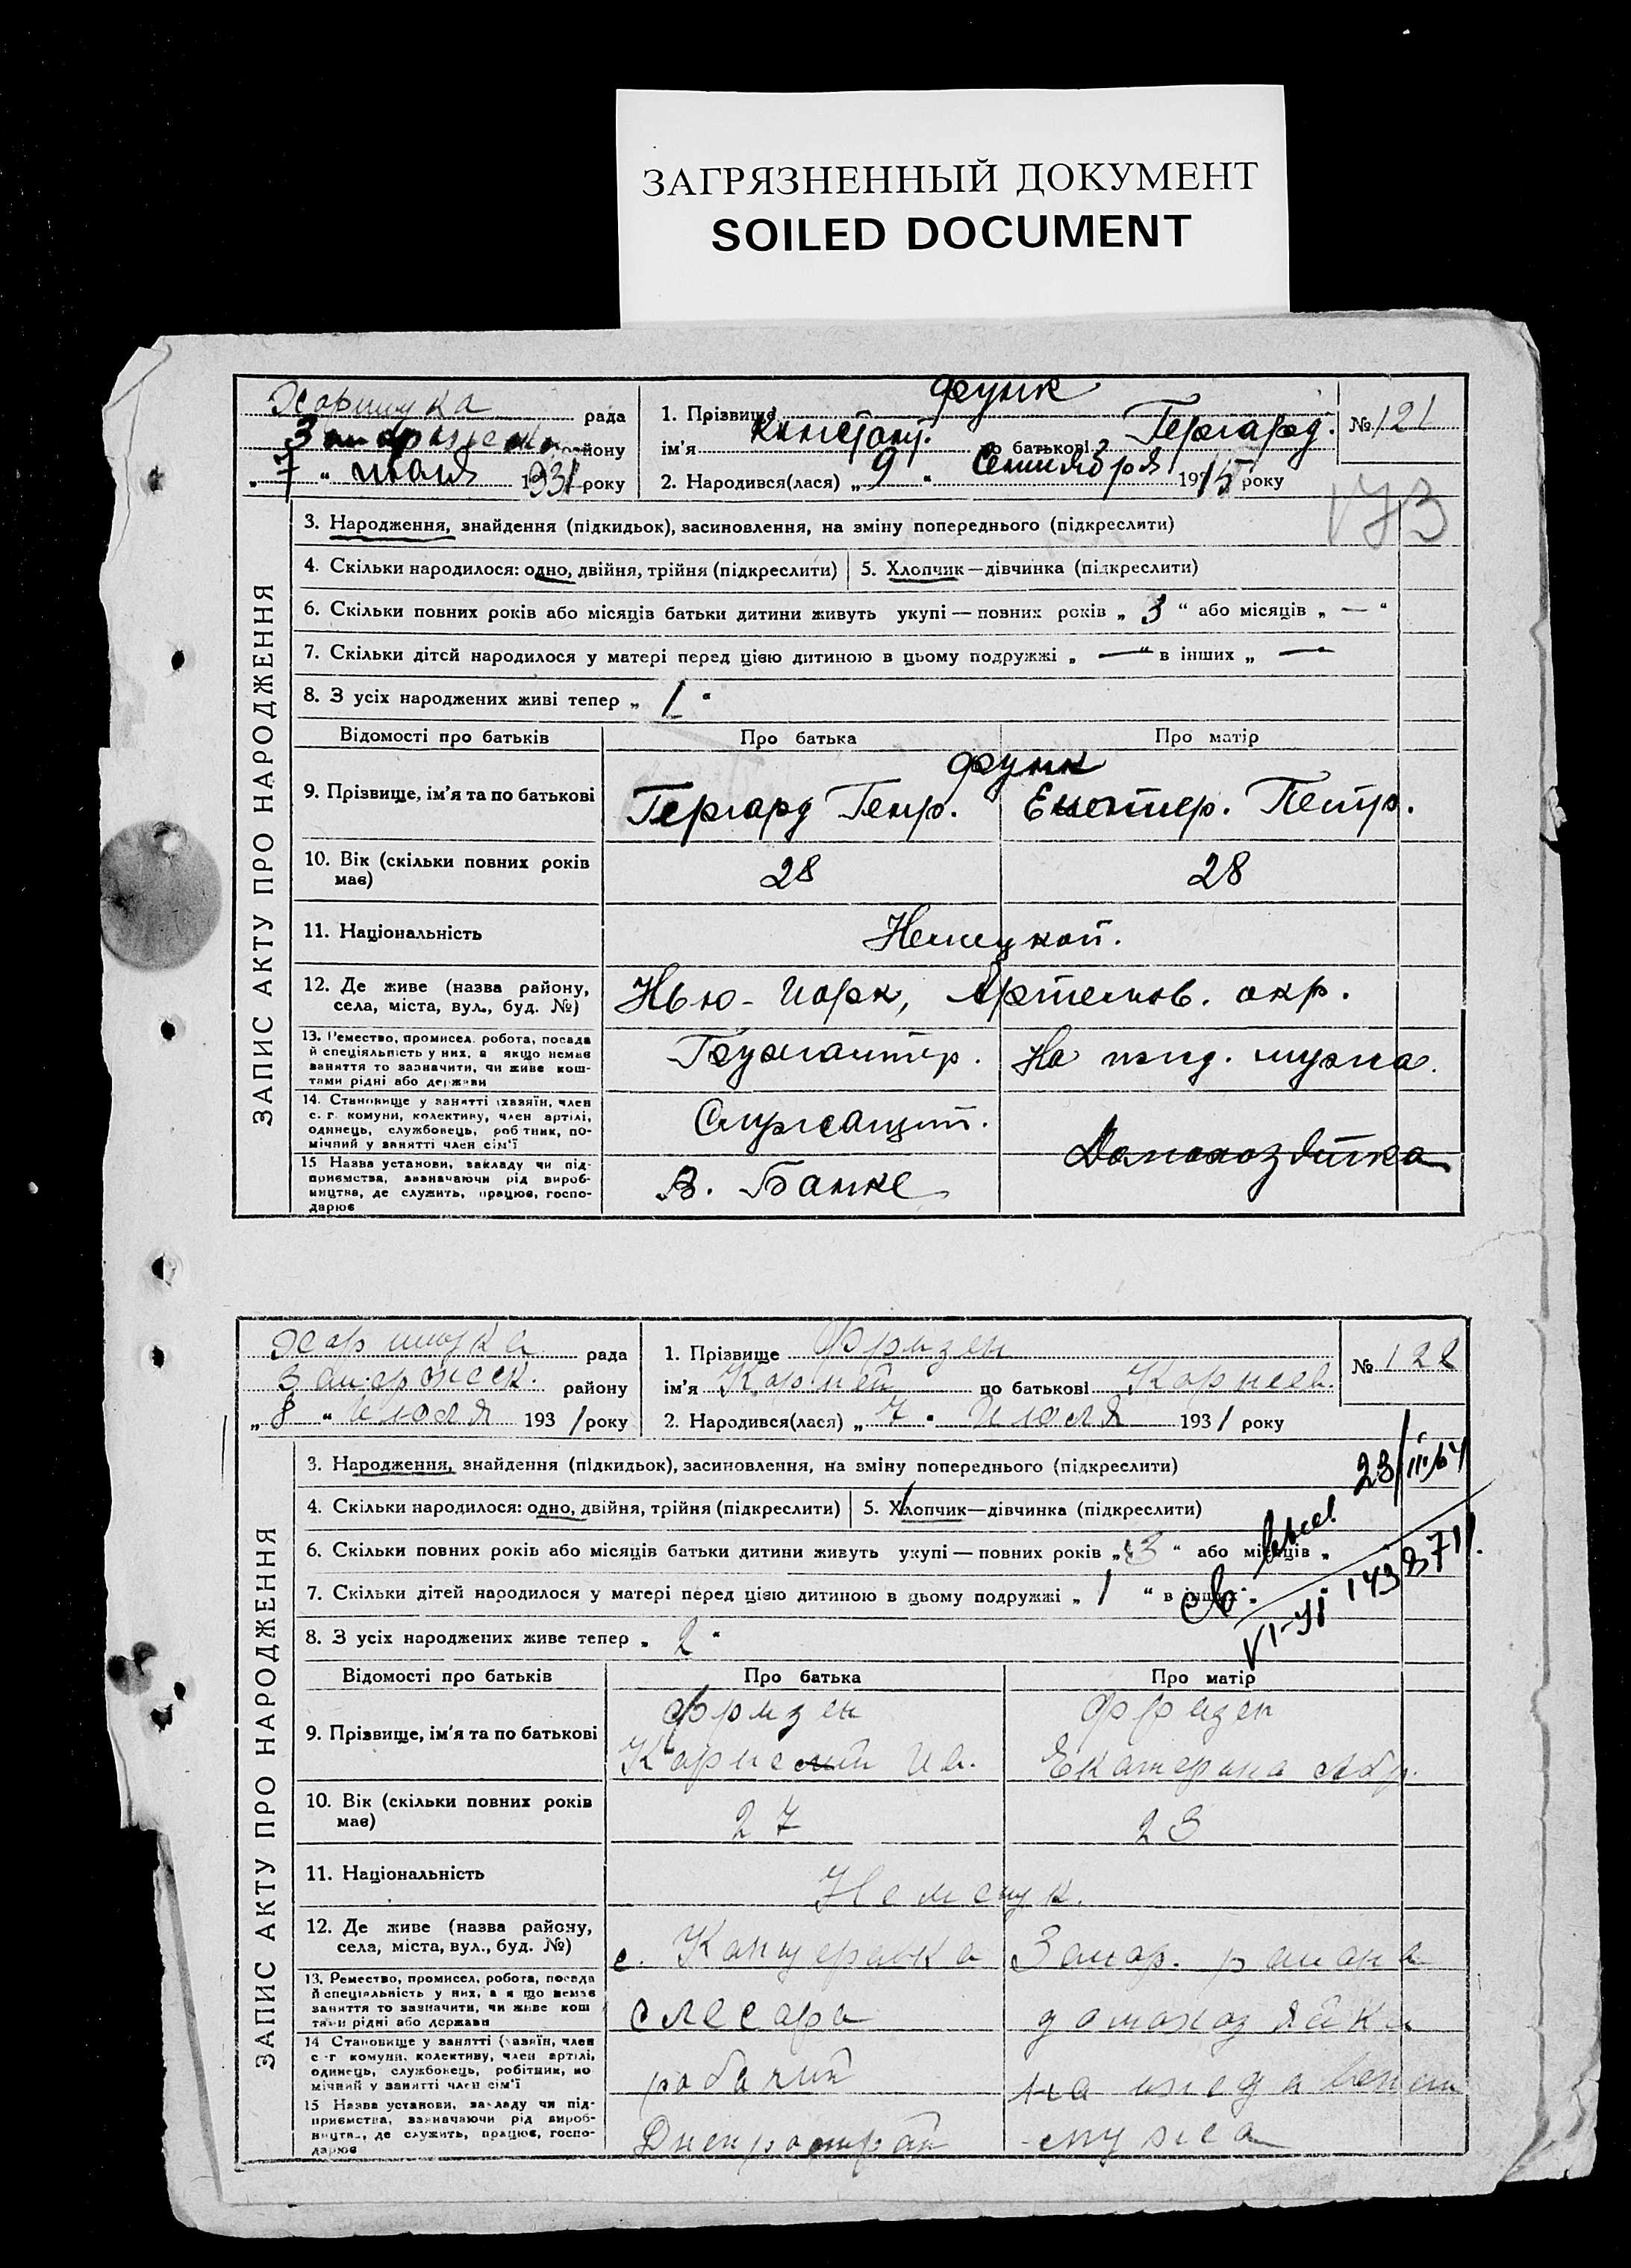 ЗАГРЯЗНЕННЫЙ ДОКУМЕНТ
SOILED DOCUMENT
рада
району
„ 7 “ июля 1931 року
1. Прізвище Функ
ім'я по батькові Гергард.
2. Народився(лася) „ 9 “ Сентября 1915 року
№ 121
173
ЗАПИС АКТУ ПРО НАРОДЖЕННЯ
3. Народження, знайдення (підкидьок), засиновлення, на зміну попереднього (підкреслити)
4. Скільки народилося: одно, двійня, трійня (підкреслити)
5. Хлопчик—дівчинка (підкреслити)
6. Скільки повних років або місяців батьки дитини живуть укупі — повних років „ 3 “ або місяців „ — “
7. Скільки дітей народилося у матері перед цією дитиною в цьому подружжі „ — “ в інших „ — “
8. З усіх народжених живі тепер „ 1 “
Відомості про батьків
Про батька
Про матір
9. Прізвище, ім'я та по батькові
Функ
Гергард Генр.
Петр.
10. Вік (скільки повних років має)
28
28
11. Національність
Немецкой.
12. Де живе (назва району, села, міста, вул., буд. №)
Нью-Иорк, Артемов. окр.
13. Ремество, промисел, робота, посада й спеціяльність у них, а якщо немає заняття то зазначити, чи живе коштами рідні або держави
Бухгалтер.
На ижд. мужа.
14. Становище у занятті (хазяїн, член с.-г. комуни, колективу, член артілі, одинець, службовець, робітник, помічний у занятті член сім'ї
Служащий.
Домохозяйка
15 Назва установи, закладу чи підприємства, зазначаючи рід виробництва, де служить, працює, господарює
В. Банке
рада
Запорожск. району
„ 8 “ Июля 1931 року
1. Прізвище Фризен
ім'я Корней по батькові Корнеев.
2. Народився(лася) „ 7 “ Июля 1931 року
№ 122
ЗАПИС АКТУ ПРО НАРОДЖЕННЯ
3. Народження, знайдення (підкидьок), засиновлення, на зміну попереднього (підкреслити)
4. Скільки народилося: одно, двійня, трійня (підкреслити)
5. Хлопчик—дівчинка (підкреслити)
6. Скільки повних років або місяців батьки дитини живуть укупі — повних років „ 3 “ або місяців „
7. Скільки дітей народилося у матері перед цією дитиною в цьому подружжі „ 1 “ в інших
8. З усіх народжених живе тепер „ 2 “
Відомості про батьків
Про батька
Про матір
9. Прізвище, ім'я та по батькові
Фризен
Корней Ив.
Фризен
Екатерина Абр.
10. Вік (скільки повних років має)
27
23
11. Національність
Немецк.
12. Де живе (назва району, села, міста, вул., буд. №)
с. Канцеровка Запор. района
13. Ремество, промисел, робота, посада й спеціяльність у них, а якщо немає заняття то зазначити, чи живе коштами рідні або держави
слесарь
домохозяйка
14 Становище у занятті (хазяїн, член с.-г. комуни, колективу, член артілі, одинець, службовець, робітник, помічний у занятті член сім'ї
рабочий
на иждивении
15 Назва установи, закладу чи підприємства, зазначаючи рід виробництва, де служить, працює, господарює
Днепрострой
мужа